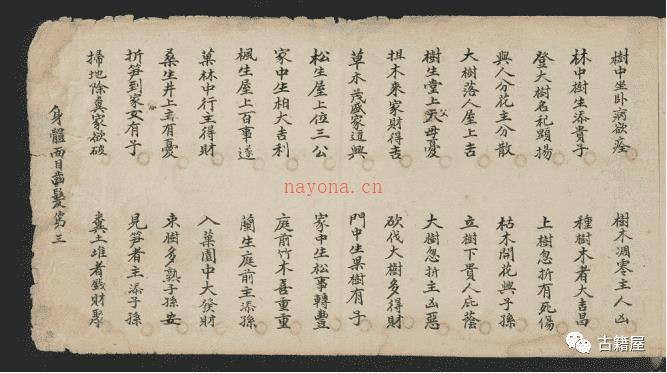 樹中坐卧病欲痊 樹木凋零主人凶
林中樹生添貴子 種樹木者大吉昌
登大樹名顕揚 上樹忽折有死傷
與人分花主分散 枯木開花興子孫
大樹落人屋上吉 立樹下貴人庇蔭
樹生堂上父母憂 大樹忽折主凶惡
担木來家財得吉 砍伐大樹多得財
草木茂盛家道興 門中生果樹有子
松生屋上位三公 家中生松事轉豊
家中生柏大吉利 庭前竹木喜重重
楓生屋上百事遂 蘭生庭前主添孫
菓林中行主得財 入菓園中大發財
桑生井上主有憂 束樹多熟子孫安
折笋到家女有子 見笋者主添子孫
掃地除糞家欲破 糞土堆者錢財聚
身體面目齒髮苐三
nayona.cn
古籍屋